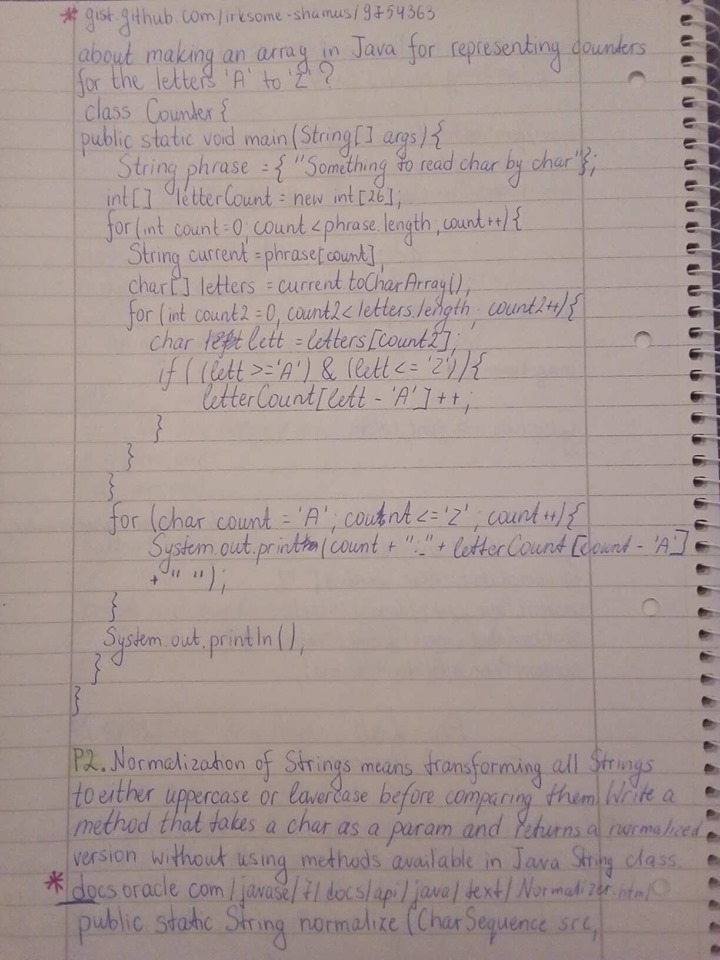 * gist.github.com/irksome-shamus/9754363
about making an array in Java for representing counters
for the letters 'A' to 'Z'?
class Counter{
public static void main(String[] args){
String phrase = { "Something to read char by char"};
int[] letterCount = new int[26];
for(int count=0; count<phrase.length; count++){
String current = phrase[count];
char[] letters = current.toCharArray();
for (int count2 = 0; count2<letters.length; count2++){
char lett = letters[count2];
if ((lett >='A') & (lett <= 'Z')){
letterCount[lett - 'A']++;
}
}
}
for (char count = 'A'; count <='Z'; count++){
System.out.print(count + ":"+ letterCount[count - 'A']
+" ");
}
System.out.println();
}
}
P2. Normalization of Strings means transforming all Strings
to either uppercase or lowercase before comparing them. Write a
method that takes a char as a param and returns a normalized
version without using methods available in Java String class.
* docs.oracle.com/javase/7/docs/api/java/text/Normalizer.html
public static String normalize (CharSequence src,